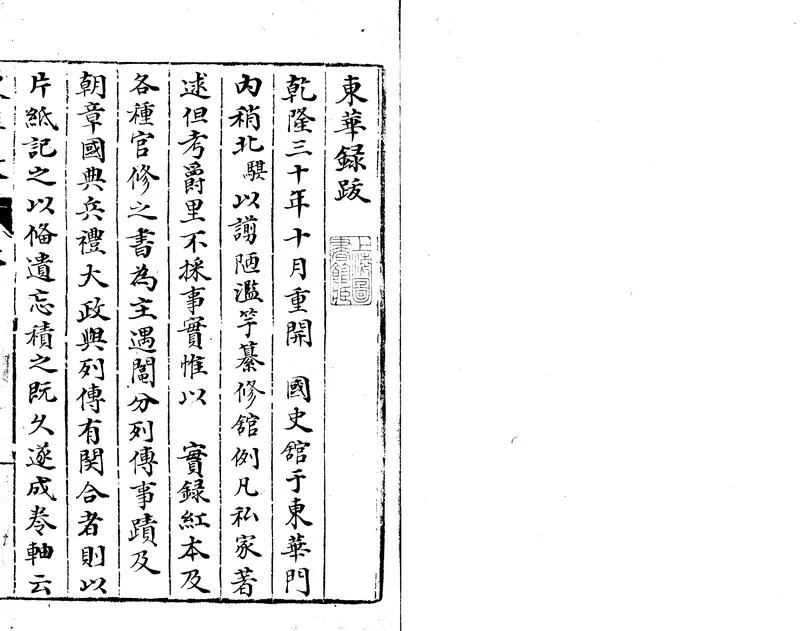 東華録跋
上海圖書館藏
乾隆三十年十月重開　國史舘于東華門
内稍北騏以謭陋濫竽纂修舘例凡私家著
述但考爵里不採事實惟以　實録紅本及
各種官修之書為主遇鬮分列傳事蹟及
朝章國典兵禮大政與列傳有関合者則以
片紙記之以俻遺忘積之既久遂成卷軸云